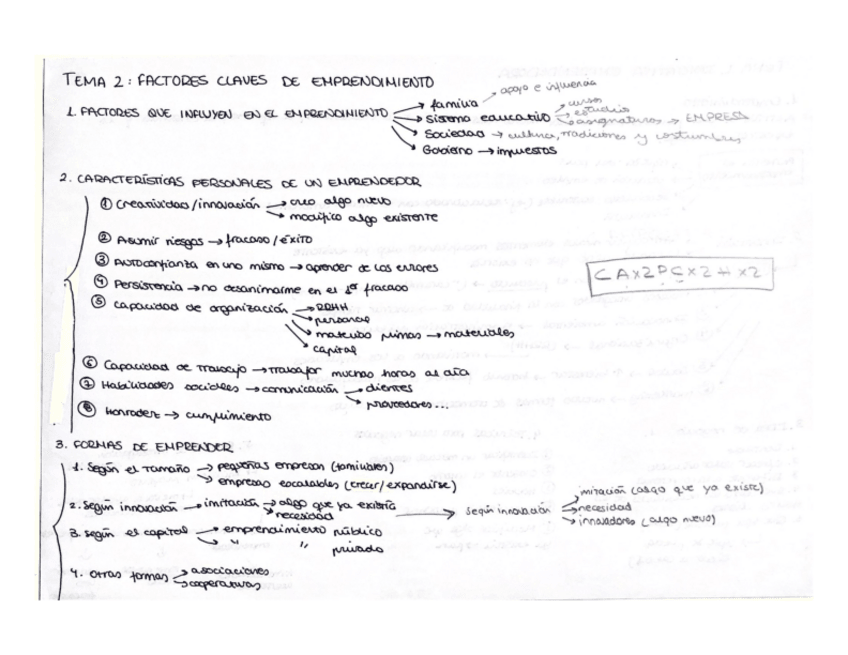 TEMA 2: FACTORES CLAVES DE EMPRENDIMIENTO
1. FACTORES QUE INFLUYEN EN EL EMPRENDIMIENTO → familia → apoyo e influencia
→ Sistema educativo → cursos
→ estudio
→ asignaturas → EMPRESA
→ Sociedad → cultura, tradiciones y costumbres
→ Gobierno → impuestos
2. CARACTERÍSTICAS PERSONALES DE UN EMPRENDEDOR
① Creatividad/innovación → creo algo nuevo
→ modifico algo existente
② Asumir riesgos → fracaso/éxito
③ Autoconfianza en uno mismo → aprender de los errores
④ Persistencia → no desanimarme en el 1er fracaso
CAx2PCx2Hx2
⑤ Capacidad de organización → RRHH
→ personal
→ materias primas → materiales
→ capital
⑥ Capacidad de Trabajo → trabajar muchas horas al día
⑦ Habilidades sociales → comunicación → clientes
→ proveedores...
⑧ Honradez → cumplimiento
3. FORMAS DE EMPRENDER
1. Según el tamaño → pequeñas empresas (familiares)
→ empresas escalables (crecer/expandirse)
2. Según innovación → imitación → algo que ya existía
→ necesidad
→ según innovación → imitación (algo que ya existe)
→ necesidad
→ innovadores (algo nuevo)
3. según el capital → emprendimiento público
→ " " privado
4. Otras formas → asociaciones
→ cooperativas